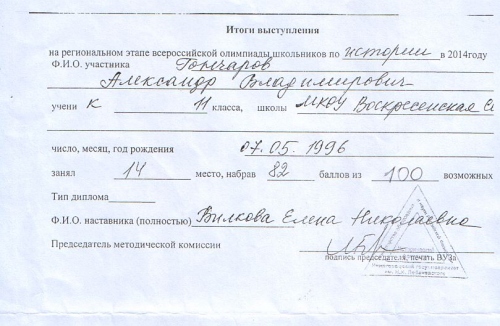 Итоги выступления
на региональном этапе всероссийской олимпиады школьников по истории в 2014году
Ф.И.О. участника Гончаров
Александр Владимирович
учени к 11 класса, школы МКОУ Воскресенская
число, месяц, год рождения 07.05.1996
занял 14 место, набрав 82 баллов из 100 возможных
Тип диплома
Ф.И.О. наставника (полностью) Вилкова Елена Николаевна
Председатель методической комиссии
подпись председателя, печать ВУЗа